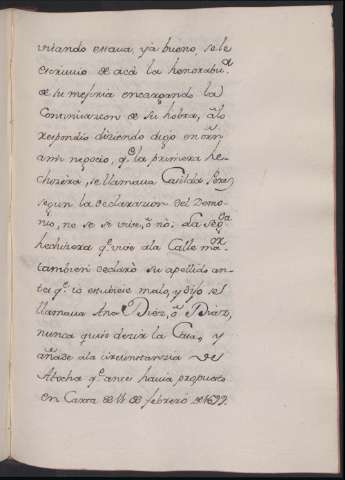 uiando estaua, ya bueno, se le
escriuio de acá la honorabe
de su mesmia encargando la
Continuacion de su hobra, a lo
respondio diziendo digo en orn
ami negocio, q.e la primera he-
chizera, se llamaua Casilda Perez
segun la declarazion del Demo-
nio, no se si viue, ô nò. La seg.da
hechizera q.e viue ala Calle ma.or
tambien declarò su apellido an-
tes q.e io estuuiese malo, y dijo se
llamaua Ana Diez, ô Diaz,
nunca quiso dezir la Casa, y
añade ala circunstanzia de
Atocha q.e antes hauia propuesto
en Carta de 14 de febrero de 1699.